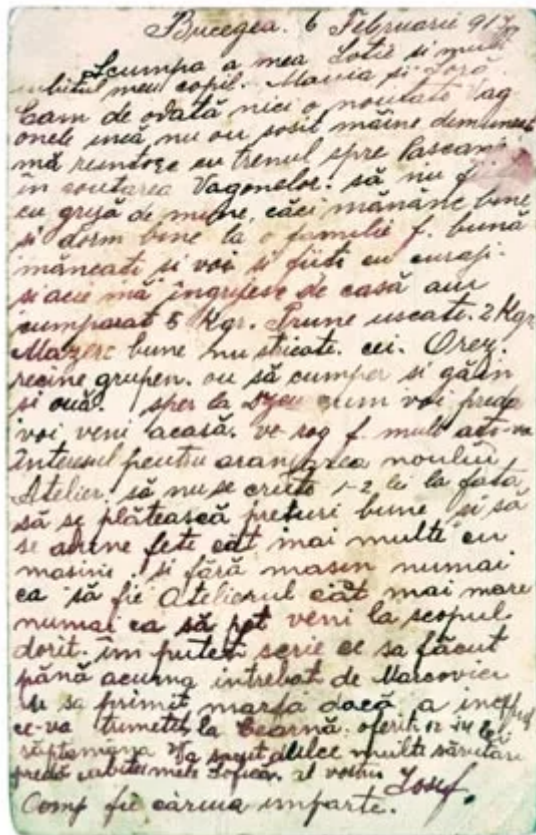 Bucecea. 6 Februarie 917
Scumpa a mea Lotie si mult
iubitul meu copil. Mania și
Cam de odată nici o noutate Vag
onele încă nu ou sosit mâine demineat
mă reîntorc cu trenul spre Pascani
in căutarea Vagonelor. să nu
cu grijă de mine, căci mănânc bine
si dorm bine la o familie f. bună
mâncati si voi si fiiti cu curaj.
si aeie mă îngrijesc de casă am
cumparat 5 Kgr. Prune uscate. 2 Kgr
Mazere bune nu stricate. cei. Orez.
recine grupen. ou să cumper si găin
si ouă. sper la cum voi preda
voi veni acasă. vo rog f. mult
Interesul pentru aranjarea noului
Atelier. să nu se cruto 1-2 lei la fată
să se plătească preturi bune si să
se adene fete cât mai multe cu
masini si fără masin numai
ca să fie Atelierul cât mai mare
numai ca să pot veni la scopul
dorit. îm puteti scrie ce sa făcut
până acuma intrebat de Marcovici
sa primit marfa dacă a
ce-va tumetit la Cearnă. oferiti 12-14 lei
săptămâna dulce multe sărutari
iubitei mele al vostru Iosef,
Comp fie căruia imparte.